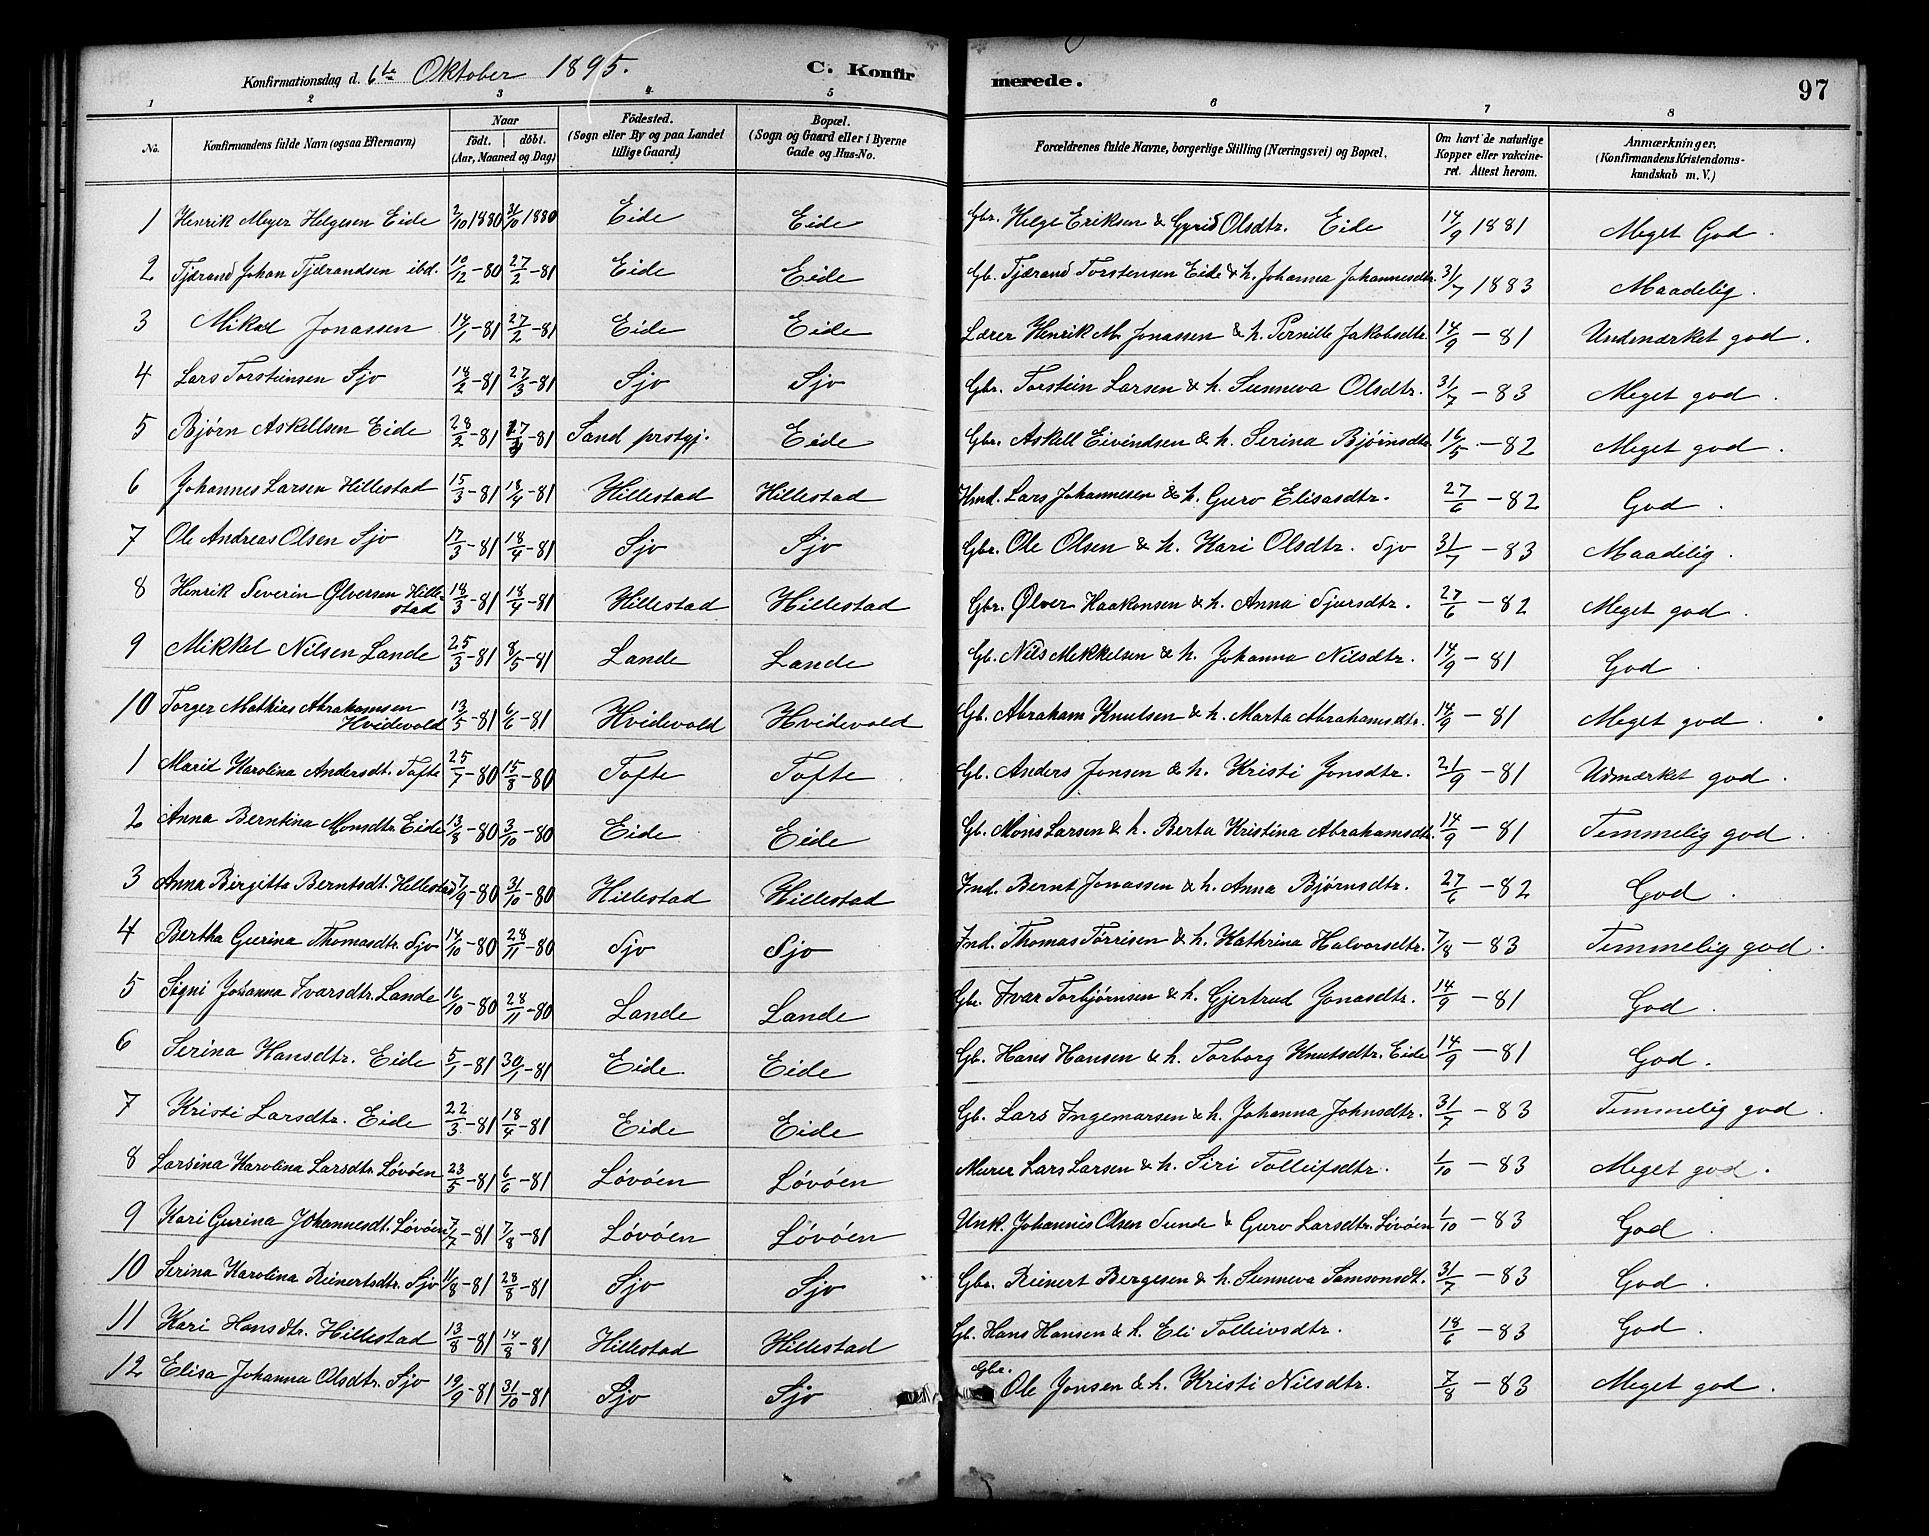 Konfirmationsdag d. 6te Oktober 1895. C. Konfirmerede. 97
1 2 3 4 5 6 7 8
No. Konfirmandens fulde Navn (ogsaa Efternavn) Naar födt. döbt. (Aar, Maaned og Dag) Födested. (Sogn eller By og paa Landet tillige Gaard) Bopæl. (Sogn og Gaard eller i Byerne Gade og Hus-No. Forældrenes fulde Navne, borgerlige Stilling (Næringsvei) og Bopæl. Om havt de naturlige Kopper eller vakcineret. Attest herom. Anmærkninger. (Konfirmandens Kristendomskundskab m. V.)
1 Henrik Meyer Helgesen Eide 2/10 1880 31/10 1880 Eide Eide Gbr. Helge Eriksen & Gyrid Olsdtr. Eide 14/9 1881 Meget God.
2 Tjærand Johan Tjærandsen ibd. 10/12-80 27/2-81 Eide Eide Gb. Tjærand Torstensen Eide & h. Johanna Johannesdtr. 31/7 1883 Maadelig.
3 Mikal Jonassen 14/1-81 27/2-81 Eide Eide Lærer Henrik M. Jonassen & h. Pernille Jakobsdtr. 14/9-81 Undmærket god.
4 Lars Torsteinsen Sjo 18/2-81 27/3-81 Sjo Sjo Gbr. Torstein Larsen & h. Sunneva Olsdtr. 31/7-83 Meget god.
5 Bjørn Askellsen Eide 28/2-81 -81 Sand prstgj. Eide Gbr. Askell Eivindsen & h. Serina Bjørnsdtr. 16/5-82 Meget god.
6 Johannes Larsen Hillestad 15/3-81 18/4-81 Hillestad Hillestad Hmd. Lars Johannesen & h. Guro Elisasdtr. 27/6-82 God.
7 Ole Andreas Olsen Sjo 17/3-81 18/4-81 Sjo Sjo Gbr. Ole Olsen & h. Kari Olsdtr. Sjo 31/7-83 Maadelig.
8 Henrik Severin Ølversen Hillestad 18/3-81 18/4-81 Hillestad Hillestad Gbr. Ølver Haakonsen & h. Anna Sjursdtr. 27/6-82 Meget god.
9 Mikkel Nilsen Lande 25/3-81 8/5-81 Lande Lande Gb. Nils Mikkelsen & h. Johanna Nilsdtr. 14/9-81 God.
10 Torger Mathias Abrahamsen Hvidevold 13/5-81 6/6-81 Hvidevold Hvidevold Gb. Abraham Knutsen & h. Marta Abrahamsdtr. 14/9-81 Meget god.
1 Marit Karolina Andersdt. Tofte 25/7-80 15/8-80 Tofte Tofte Gb. Anders Jonsen & h. Kristi Jonsdtr. 21/9-81 Udmærket god.
2 Anna Berntina Monsdtr. Eide 13/8-80 3/10-80 Eide Eide Gb. Mons Larsen & h. Berta Kristina Abrahamsdt. 14/9-81 Temmelig god.
3 Anna Birgitta Berntsdt. Hillestad 7/9-80 31/10-80 Hillestad Hillestad Ind. Bernt Jonassen & h. Anna Bjørnsdtr. 27/6-82 God.
4 Bertha Gurina Thomasdtr. Sjo 14/10-80 28/11-80 Sjo Sjo Ind. Thomas Tørrisen & h. Kathrina Halvorsdtr. 7/8-83 Temmelig god.
5 Signi Johanna Ivarsdtr. Lande 16/10-80 28/11-80 Lande Lande Gbr. Ivar Torbjørnsen & h. Gjertrud Jonasdtr. 14/9-81 God.
6 Serina Hansdtr. Eide 5/1-81 30/1-81 Eide Eide Gb. Hans Hansen & h. Torborg Knutsdtr. Eide 14/9-81 God.
7 Kristi Larsdtr. Eide 22/3-81 18/4-81 Eide Eide Gb. Lars Ingemarsen & h. Johanna Johnsdtr. 31/7-83 Temmelig god.
8 Larsina Karolina Larsdtr. Løvøen 23/5-81 6/6-81 Løvøen Løvøen Murer Lars Larsen & h. Siri Tolleifsdtr. 1/10-83 Meget god.
9 Kari Gurina Johannesdt. Løvøen 7/7-81 7/8-81 Løvøen Løvøen Unk. Johannes Olsen Sunde & Guro Larsdtr. Løvøen 1/10-83 God.
10 Serina Karolina Reinertsdtr. Sjo 11/8-81 28/8-81 Sjo Sjo Gbr. Reinert Bergesen & h. Sunneva Samsonsdt. 31/7-83 God.
11 Kari Hansdtr. Hillestad 13/8-81 14/8-81 Hillestad Hillestad Gb. Hans Hansen & h. Eli Tolleivsdtr. 18/6-83 God.
12 Elisa Johanna Olsdtr. Sjo 19/9-81 31/10-81 Sjo Sjo Gbr. Ole Jonsen & h. Kristi Nilsdtr. 7/8-83 Meget god.